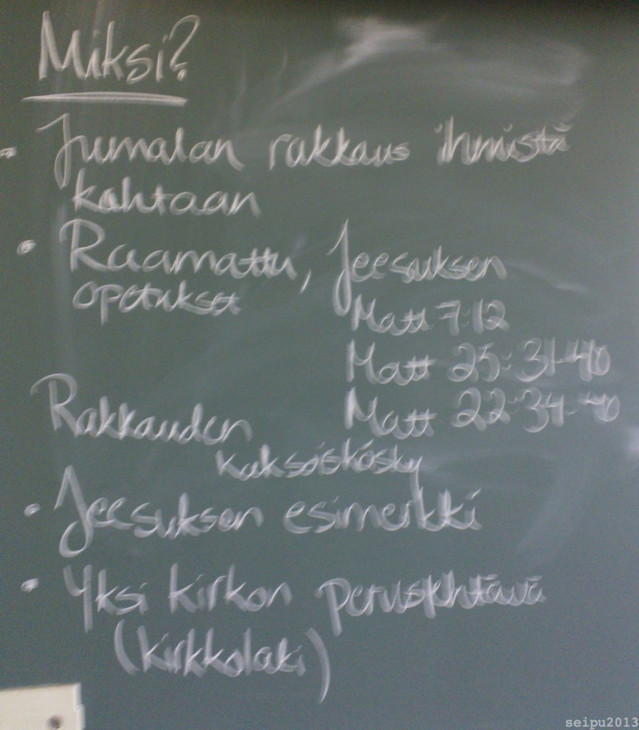 Miksi?
• Jumalan rakkaus ihmistä
kohtaan
• Raamattu, Jeesuksen
opetukset
Matt 7:12
Matt 25:31-40
Rakkauden Matt 22:34-40
kaksoiskäsky
• Jeesuksen esimerkki
• Yksi kirkon perustehtävä
(kirkkolaki)
seipu2013